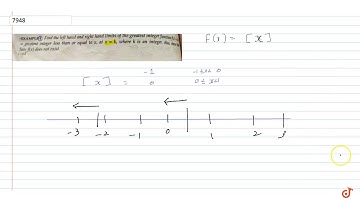 7948
EXAMPLE Find the left and right hand limits of the greatest integer function
greatest integer less than or equal to x, at x = k, where k is an integer. Also, show that
does not exist
f(1) = [x]
[x] = -1
0 0 ≤ x <1
-3 -2 -1 0 1 2 3